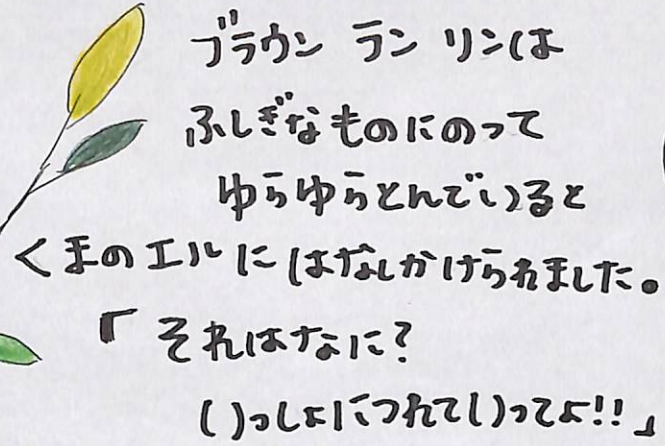 ブラウン ラン リンは
ふしぎなものにのって
ゆらゆらとんでいると
くまのエルにはなしかけられました。
「それはなに?
いっしょにつれていってよ!!」